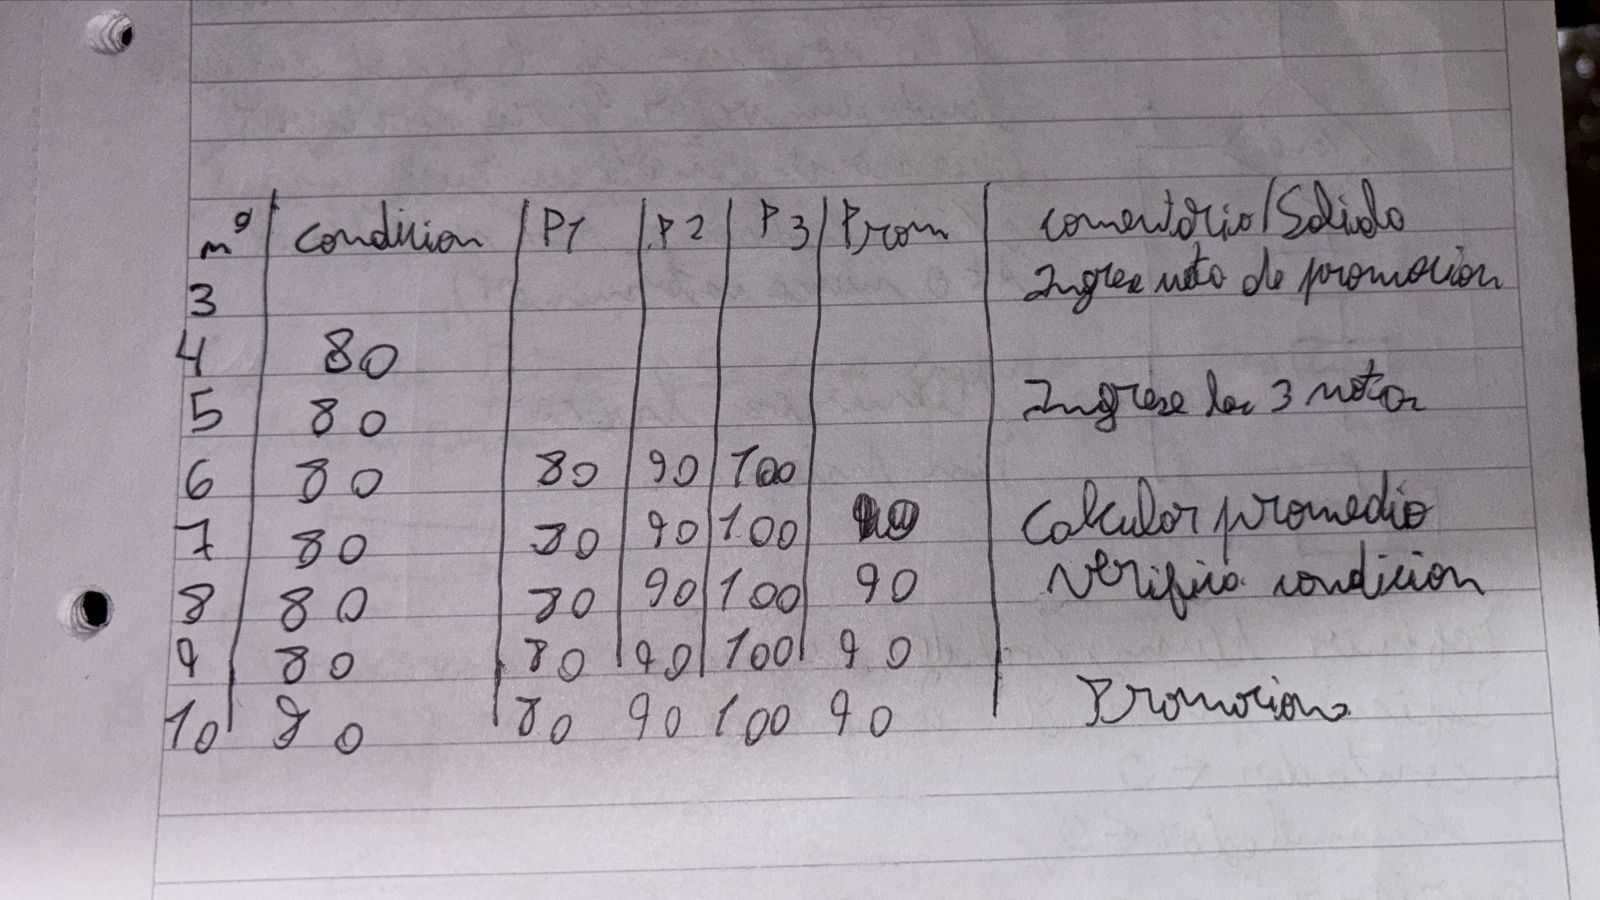 nº condicion P1 P2 P3 Prom comentario/Salida
3 Ingrese nota de promocion
4 80
5 80 Ingrese las 3 notas
6 80 80 90 100
7 80 80 90 100 Calcular promedio
8 80 80 90 100 90 Verifica condicion
9 80 80 90 100 90
10 80 80 90 100 90 Promociona